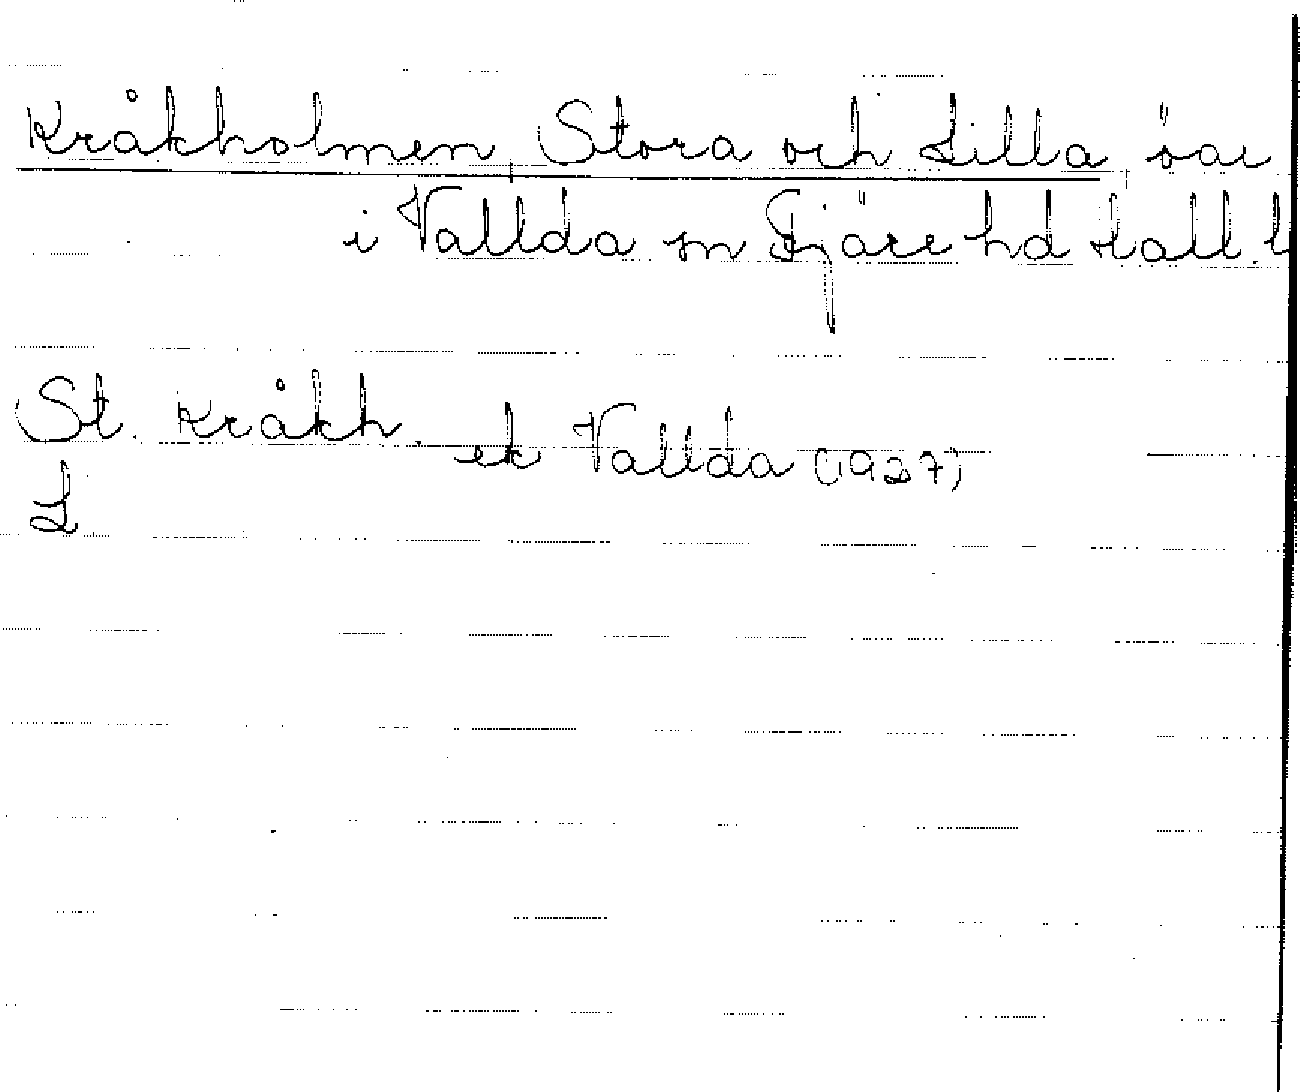 Kråkholmen, Stora och Lilla, öar
i Vallda sn Fjäre hd Hall. l
St. Kråkh. ek Vallda (1927)
L